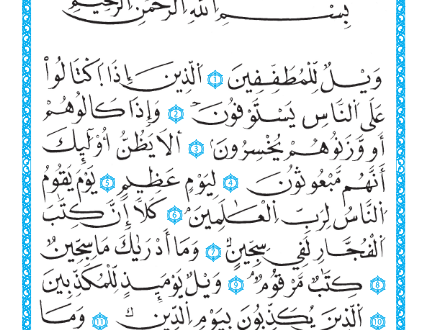 بِسْمِ اللَّهِ الرَّحْمَٰنِ الرَّحِيمِ
وَيْلٌ لِّلْمُطَفِّفِينَ ١ ٱلَّذِينَ إِذَا ٱكْتَالُوا۟
عَلَى ٱلنَّاسِ يَسْتَوْفُونَ ٢ وَإِذَا كَالُوهُمْ
أَو وَّزَنُوهُمْ يُخْسِرُونَ ٣ أَلَا يَظُنُّ أُو۟لَٰٓئِكَ
أَنَّهُم مَّبْعُوثُونَ ٤ لِيَوْمٍ عَظِيمٍ ٥ يَوْمَ يَقُومُ
ٱلنَّاسُ لِرَبِّ ٱلْعَٰلَمِينَ ٦ كَلَّآ إِنَّ كِتَٰبَ
ٱلْفُجَّارِ لَفِى سِجِّينٍ ٧ وَمَآ أَدْرَىٰكَ مَا سِجِّينٌ
٨ كِتَٰبٌ مَّرْقُومٌ ٩ وَيْلٌ يَوْمَئِذٍ لِّلْمُكَذِّبِينَ
١٠ ٱلَّذِينَ يُكَذِّبُونَ بِيَوْمِ ٱلدِّينِ ١١ وَمَا